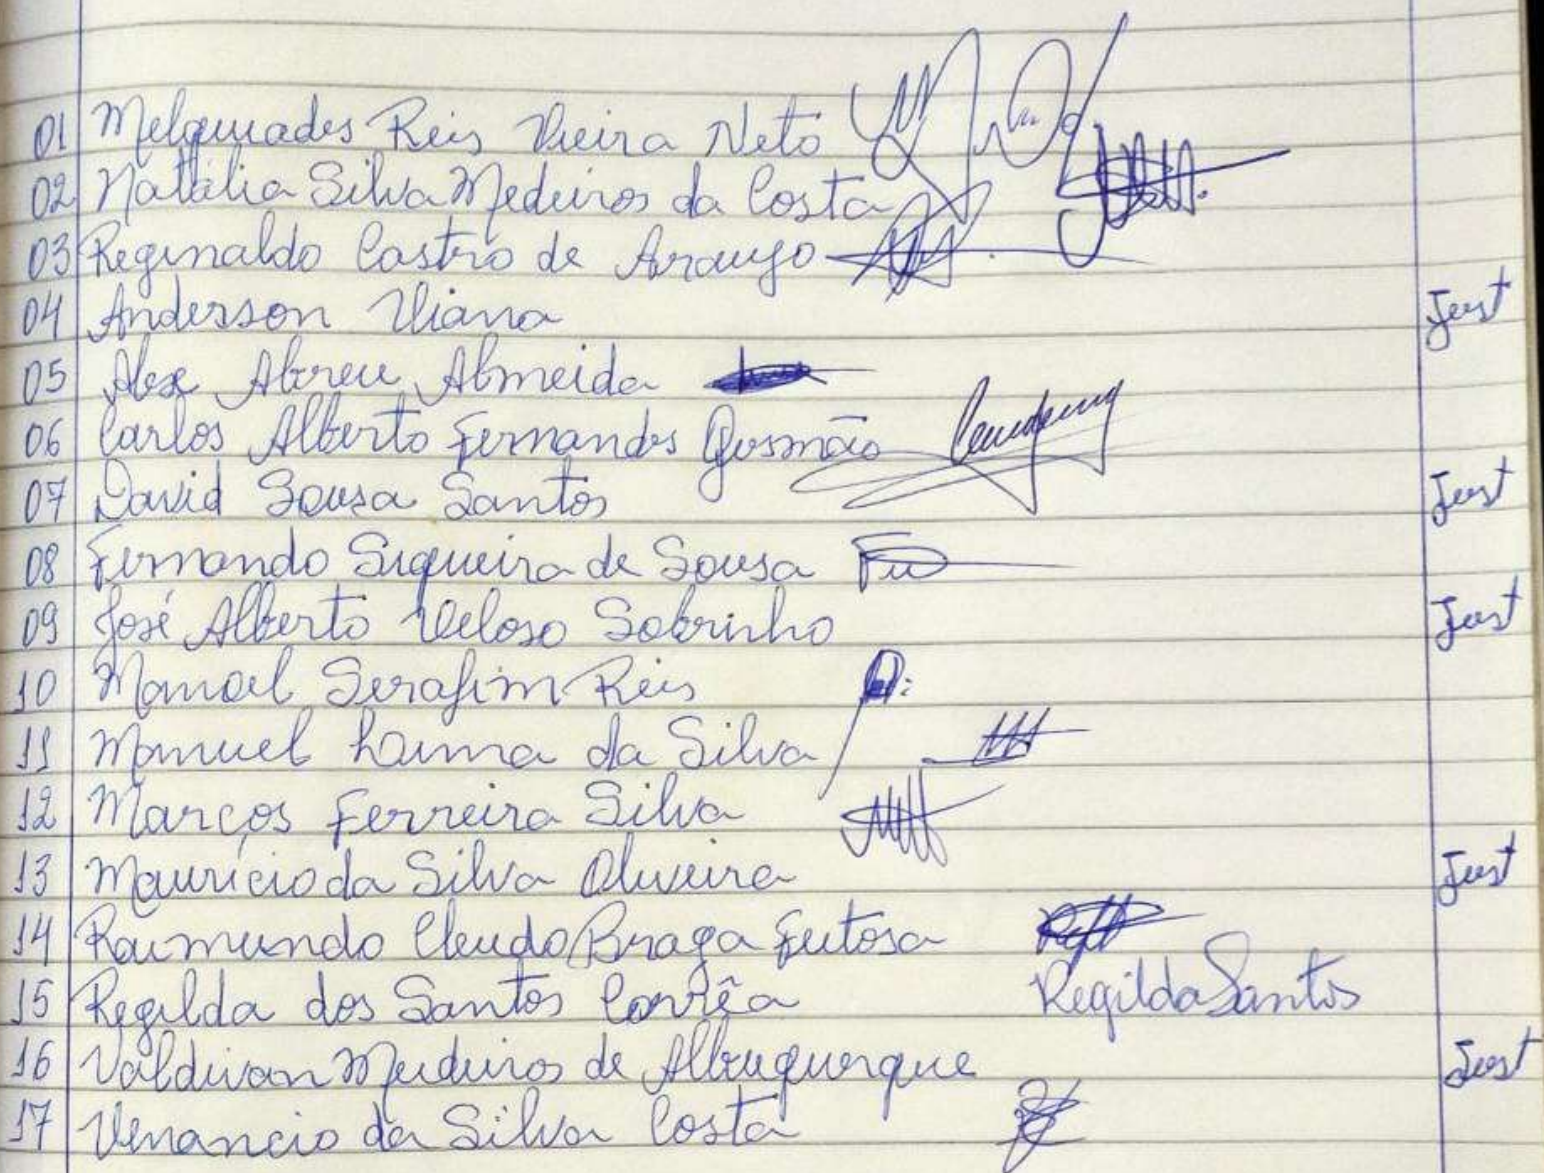 01 Melquiades Reis Vieira Neto
02 Natália Silva Medeiros da Costa
03 Reginaldo Castro de Araujo
04 Anderson Viana Just
05 Alex Abreu Almeida
06 Carlos Alberto Fernandes Gusmão
07 David Sousa Santos Just
08 Fernando Siqueira de Sousa
09 José Alberto Veloso Sobrinho Just
10 Manoel Serafim Reis
11 Manuel Lima da Silva
12 Marcos Ferreira Silva
13 Maurício da Silva Oliveira Just
14 Raimundo Cleudo Braga Feitosa
15 Regilda dos Santos Corrêa Regilda Santos
16 Valdivan Medeiros de Albuquerque Just
17 Venancio da Silva Costa